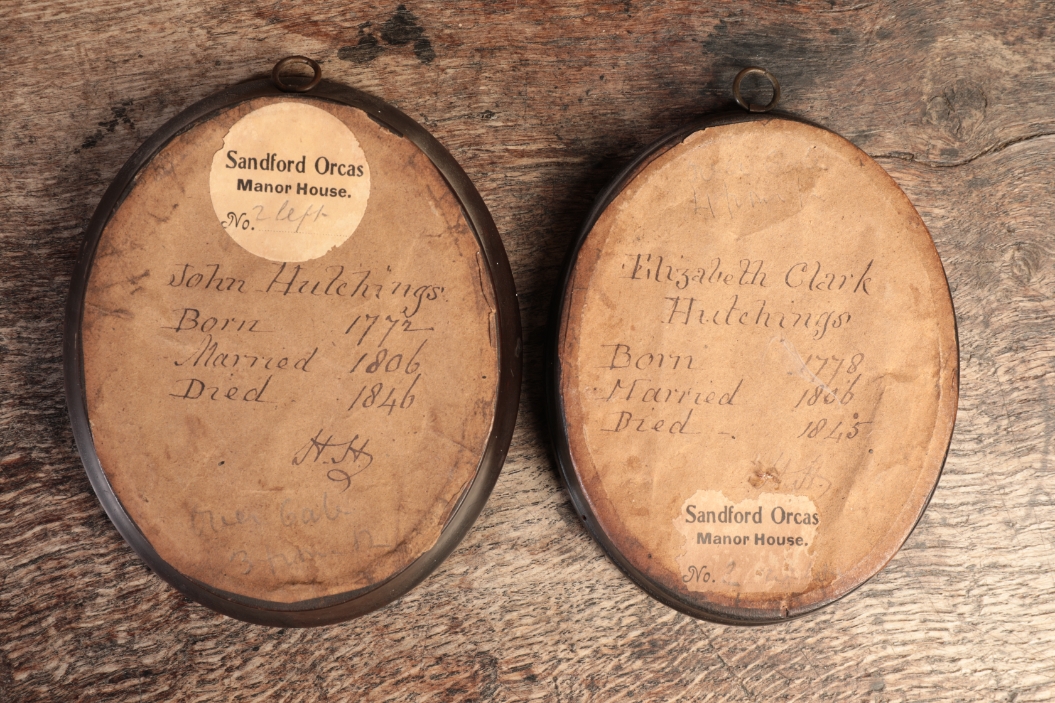 Sandford Orcas
Manor House.
No. 2 left
John Hutchings.
Born 1772
Married 1806
Died 1846
H.H.
Elizabeth Clark
Hutchings
Born 1778
Married 1806
Died - 1845
H.H.
Sandford Orcas
Manor House.
No. 2